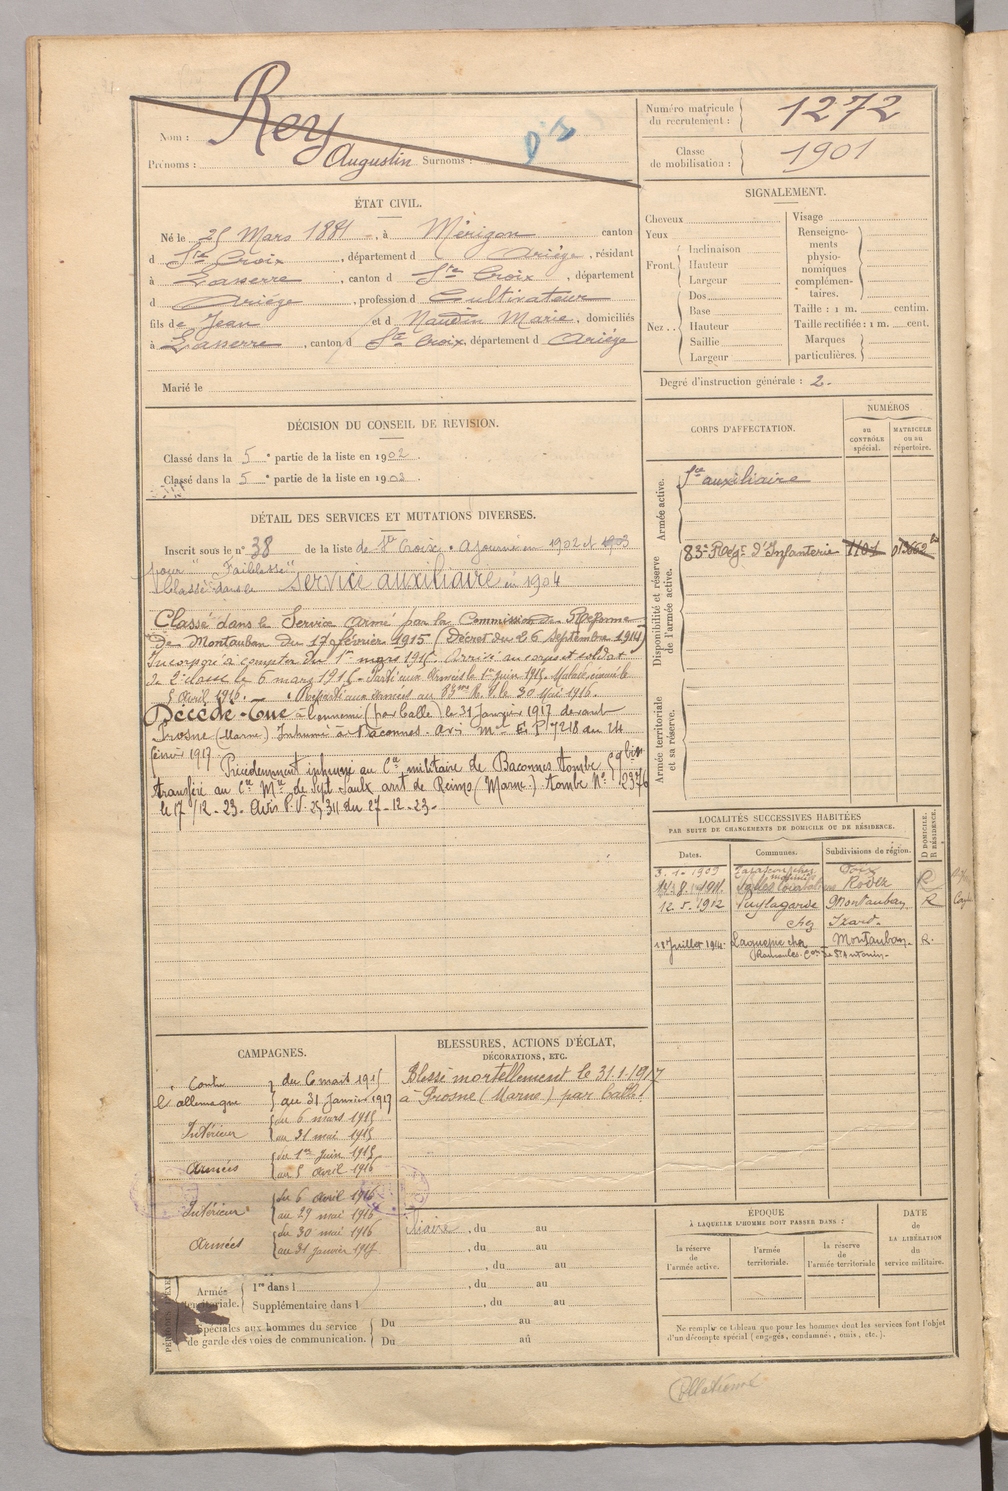 Nom : Rey
Prénoms : Augustin Surnoms :
Numéro matricule du recrutement : 1272
Classe de mobilisation : 1901
ÉTAT CIVIL.
Né le 25 Mars 1881, à Mérigon canton
d Ste Croix, département d Ariège, résidant
à Lasserre, canton d Ste Croix, département
d Ariège, profession d Cultivateur
fils de Jean et d Naudin Marie, domiciliés
à Lasserre, canton d Ste Croix, département d Ariège
Marié le
SIGNALEMENT.
Cheveux
Yeux
Front. Inclinaison
Hauteur
Largeur
Nez.. Dos
Base
Hauteur
Saillie
Largeur
Visage
Renseignements physionomiques complémentaires.
Taille : 1 m. centim.
Taille rectifiée : 1 m. cent.
Marques particulières.
Degré d'instruction générale : 2.
DÉCISION DU CONSEIL DE REVISION.
Classé dans la 5e partie de la liste en 1902.
Classé dans la 5e partie de la liste en 1903.
CORPS D'AFFECTATION.
NUMÉROS
au CONTRÔLE spécial.
MATRICULE ou au répertoire.
Armée active.
Sce auxiliaire
Disponibilité et réserve de l'armée active.
83e Rég. d'Infanterie 1101 013662
Armée territoriale et sa réserve.
DÉTAIL DES SERVICES ET MUTATIONS DIVERSES.
Inscrit sous le n° 38 de la liste de Ste Croix. Ajourné en 1902 et 1903
pour "Faiblesse"
Classé dans le service auxiliaire en 1904
Classé dans le Service armé par la Commission de Réforme
de Montauban du 17 février 1915 (Décret du 26 Septembre 1914)
Incorporé à compter du 1er mars 1915. Arrivé au corps et soldat
de 2e classe le 6 mars 1915. Parti aux Armées le 1er juin 1915. Malade évacué le
5 Avril 1916. Reparti aux Armées au 83me R. I. le 30 Mai 1916.
Décédé - Tué à l'ennemi (par balle) le 31 Janvier 1917 devant
Prosne (Marne) Inhumé à Baconnes. avis mel E.P. 7218 du 24
février 1917
Précédemment inhumé au Cre militaire de Baconnes tombe 59 bis
transféré au Cre Mre de Sept Saulx arrt de Reims (Marne) tombe N° 2376
le 17/12-23. Avis P.V. 25311 du 27-12-23.
LOCALITÉS SUCCESSIVES HABITÉES
PAR SUITE DE CHANGEMENTS DE DOMICILE OU DE RÉSIDENCE.
Dates. Communes. Subdivisions de région. D DOMICILE. R RÉSIDENCE.
3.1.1909 Tarascon chez Foix
8.1911. Rodez R
12.5.1912 Puylagarde Montauban R
chez Izard.
18 Juillet 1914. Laguepie chez Montauban. R.
Con de St Antonin.
CAMPAGNES.
Contre l'allemagne du 6 mars 1915
au 31 Janvier 1917
Intérieur du 6 mars 1915
au 31 mai 1915
Armées du 1er juin 1915
au 5 avril 1916
Intérieur du 6 avril 1916
au 29 mai 1916
Armées du 30 mai 1916
au 31 janvier 1917
BLESSURES, ACTIONS D'ÉCLAT,
DÉCORATIONS, ETC.
Blessé mortellement le 31.1.1917
à Prosne (Marne) par balle.
liaire, du au
, du au
, du au
Armée territoriale. 1re dans l , du au
Supplémentaire dans l , du au
Spéciales aux hommes du service Du au
de garde des voies de communication. Du au
ÉPOQUE
À LAQUELLE L'HOMME DOIT PASSER DANS :
la réserve de l'armée active.
l'armée territoriale.
la réserve de l'armée territoriale
DATE de LA LIBÉRATION du service militaire.
Ne remplir ce tableau que pour les hommes dont les services font l'objet
d'un décompte spécial (engagés, condamnés, omis, etc.).